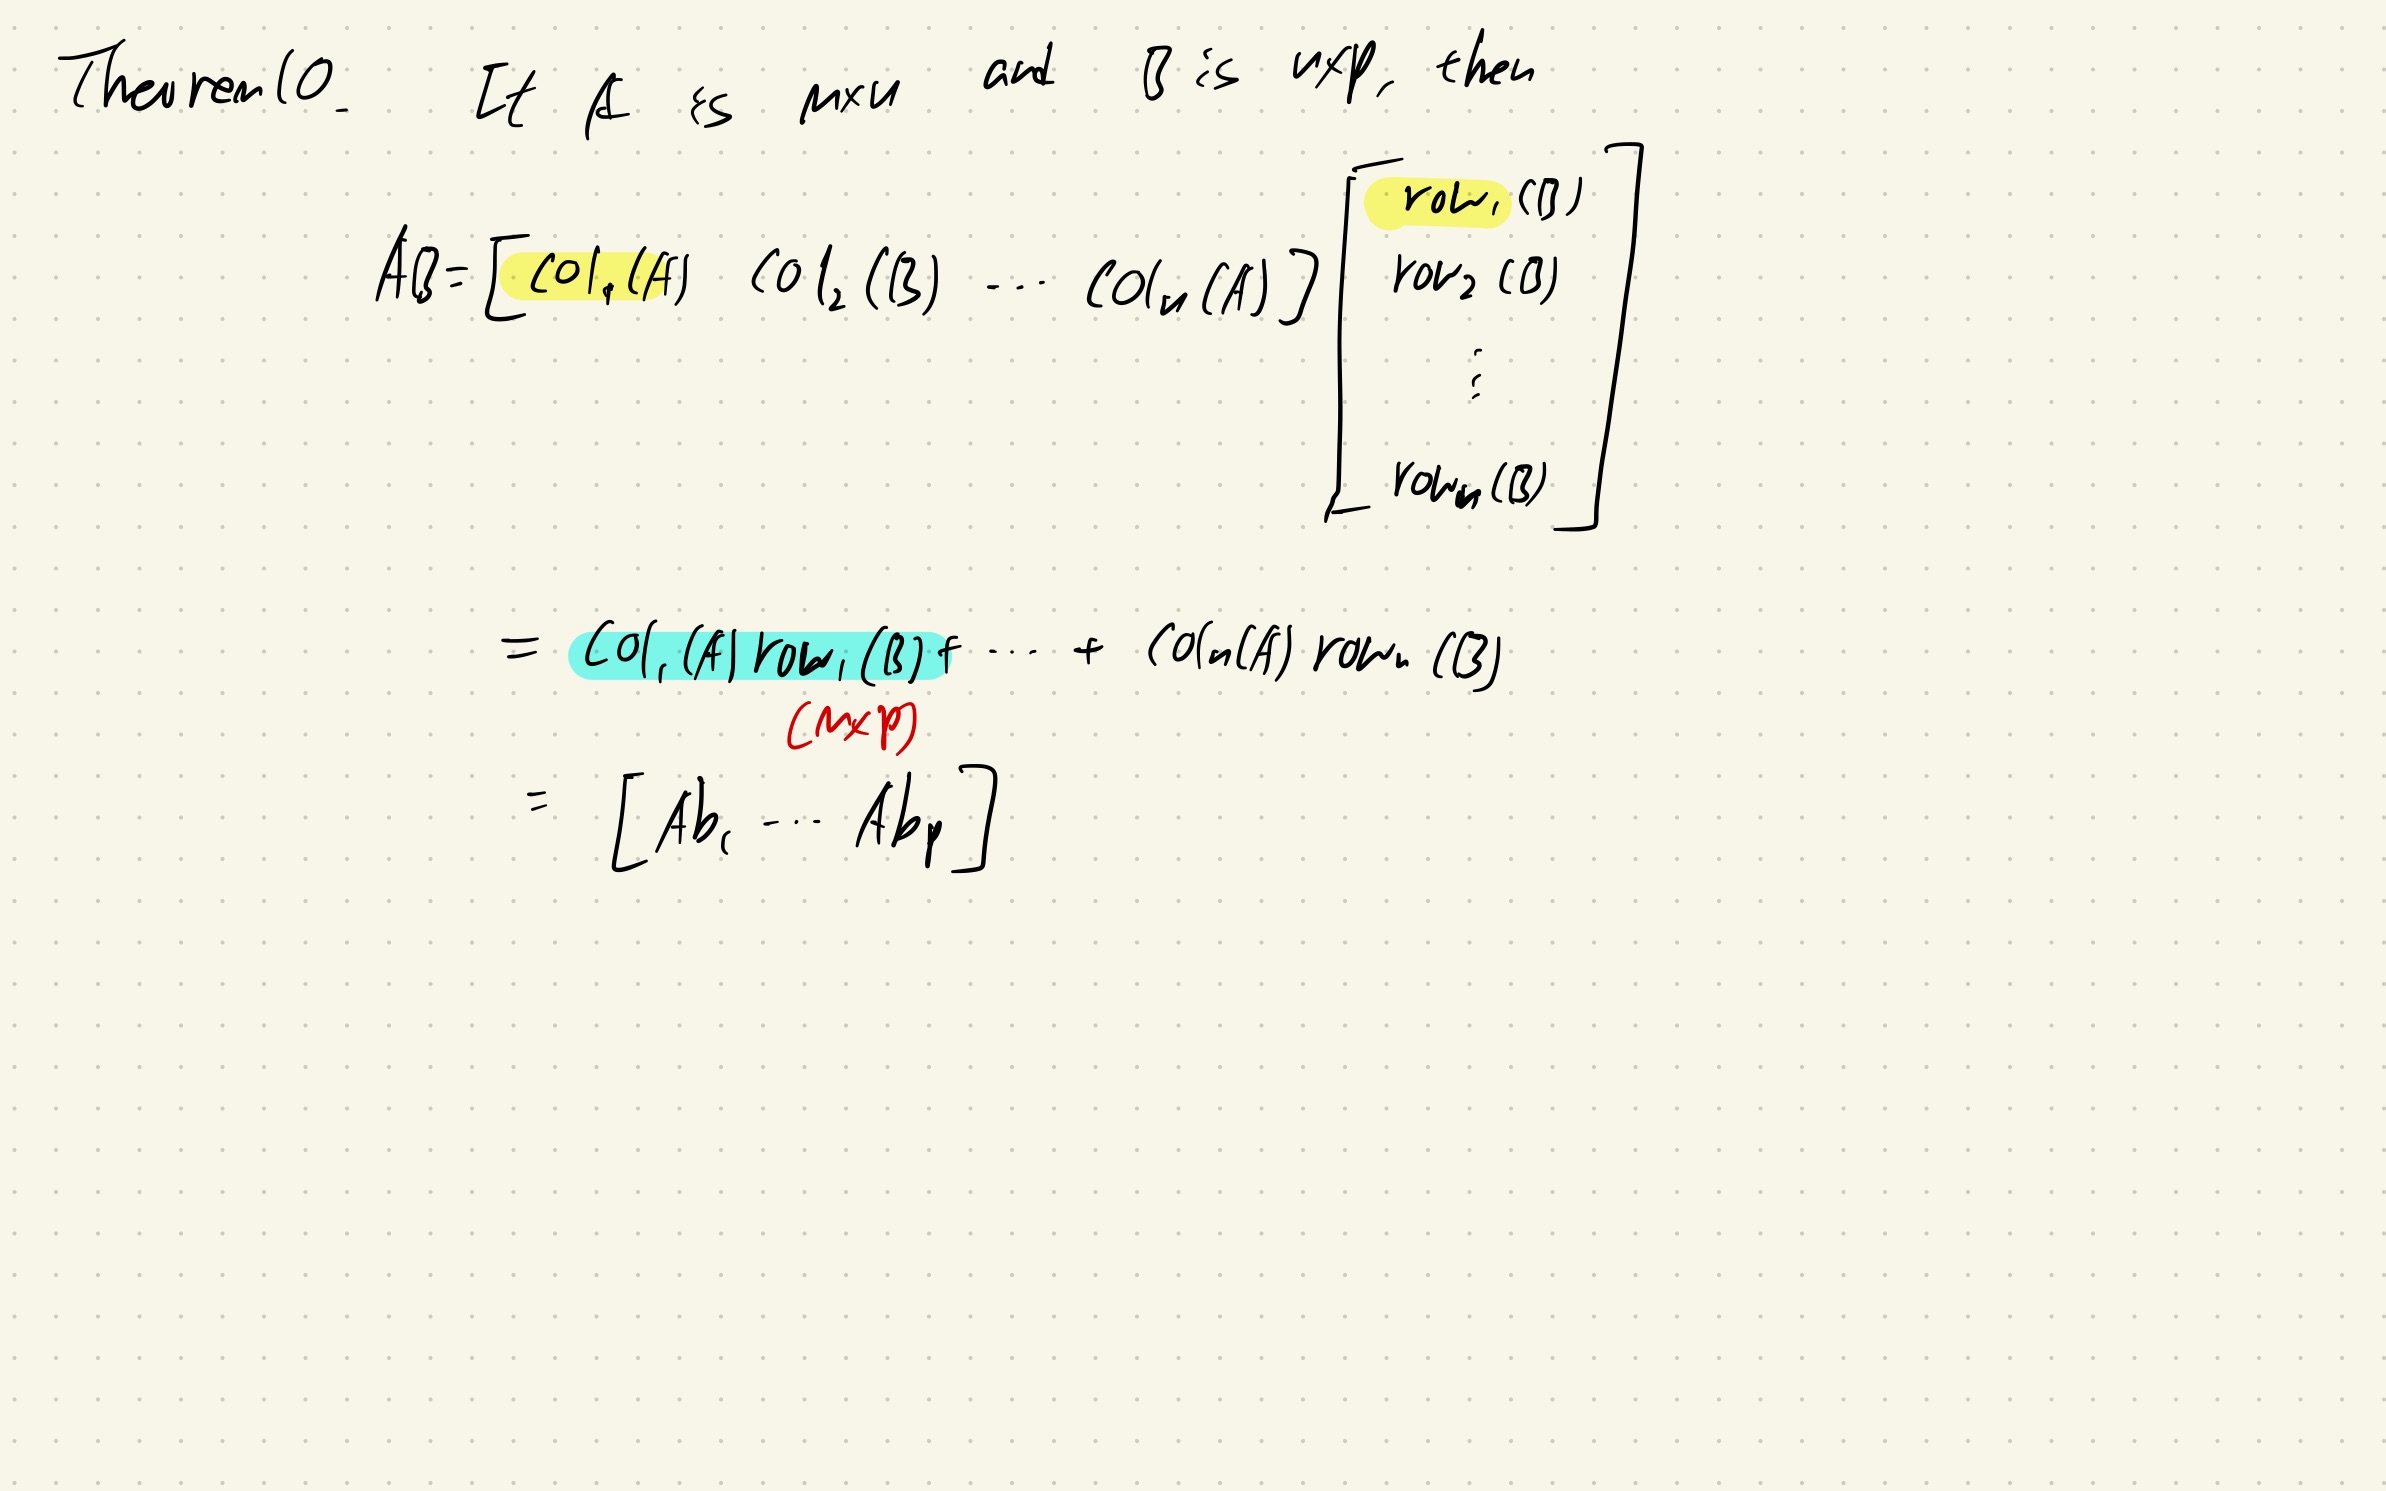 Theorem 10. If A is m×n and B is n×p, then
AB = [col₁(A) col₂(B) ... colₙ(A)] [row₁(B)
row₂(B)
⋮
rowₙ(B)]
= col₁(A) row₁(B) + ... + colₙ(A) rowₙ(B)
(m×p)
= [Ab₁ ... Abₚ]